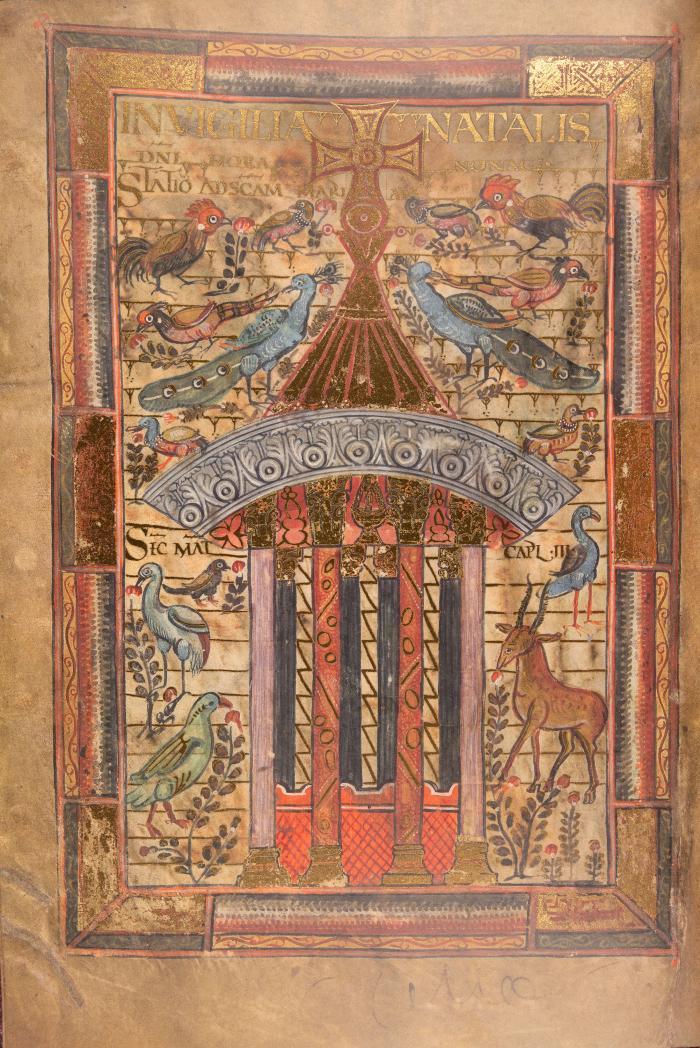 IN VIGILIA NATALIS
DNI HORA NONA
STATIO AD SCAM MARIAM
SEC MAT CAPL III